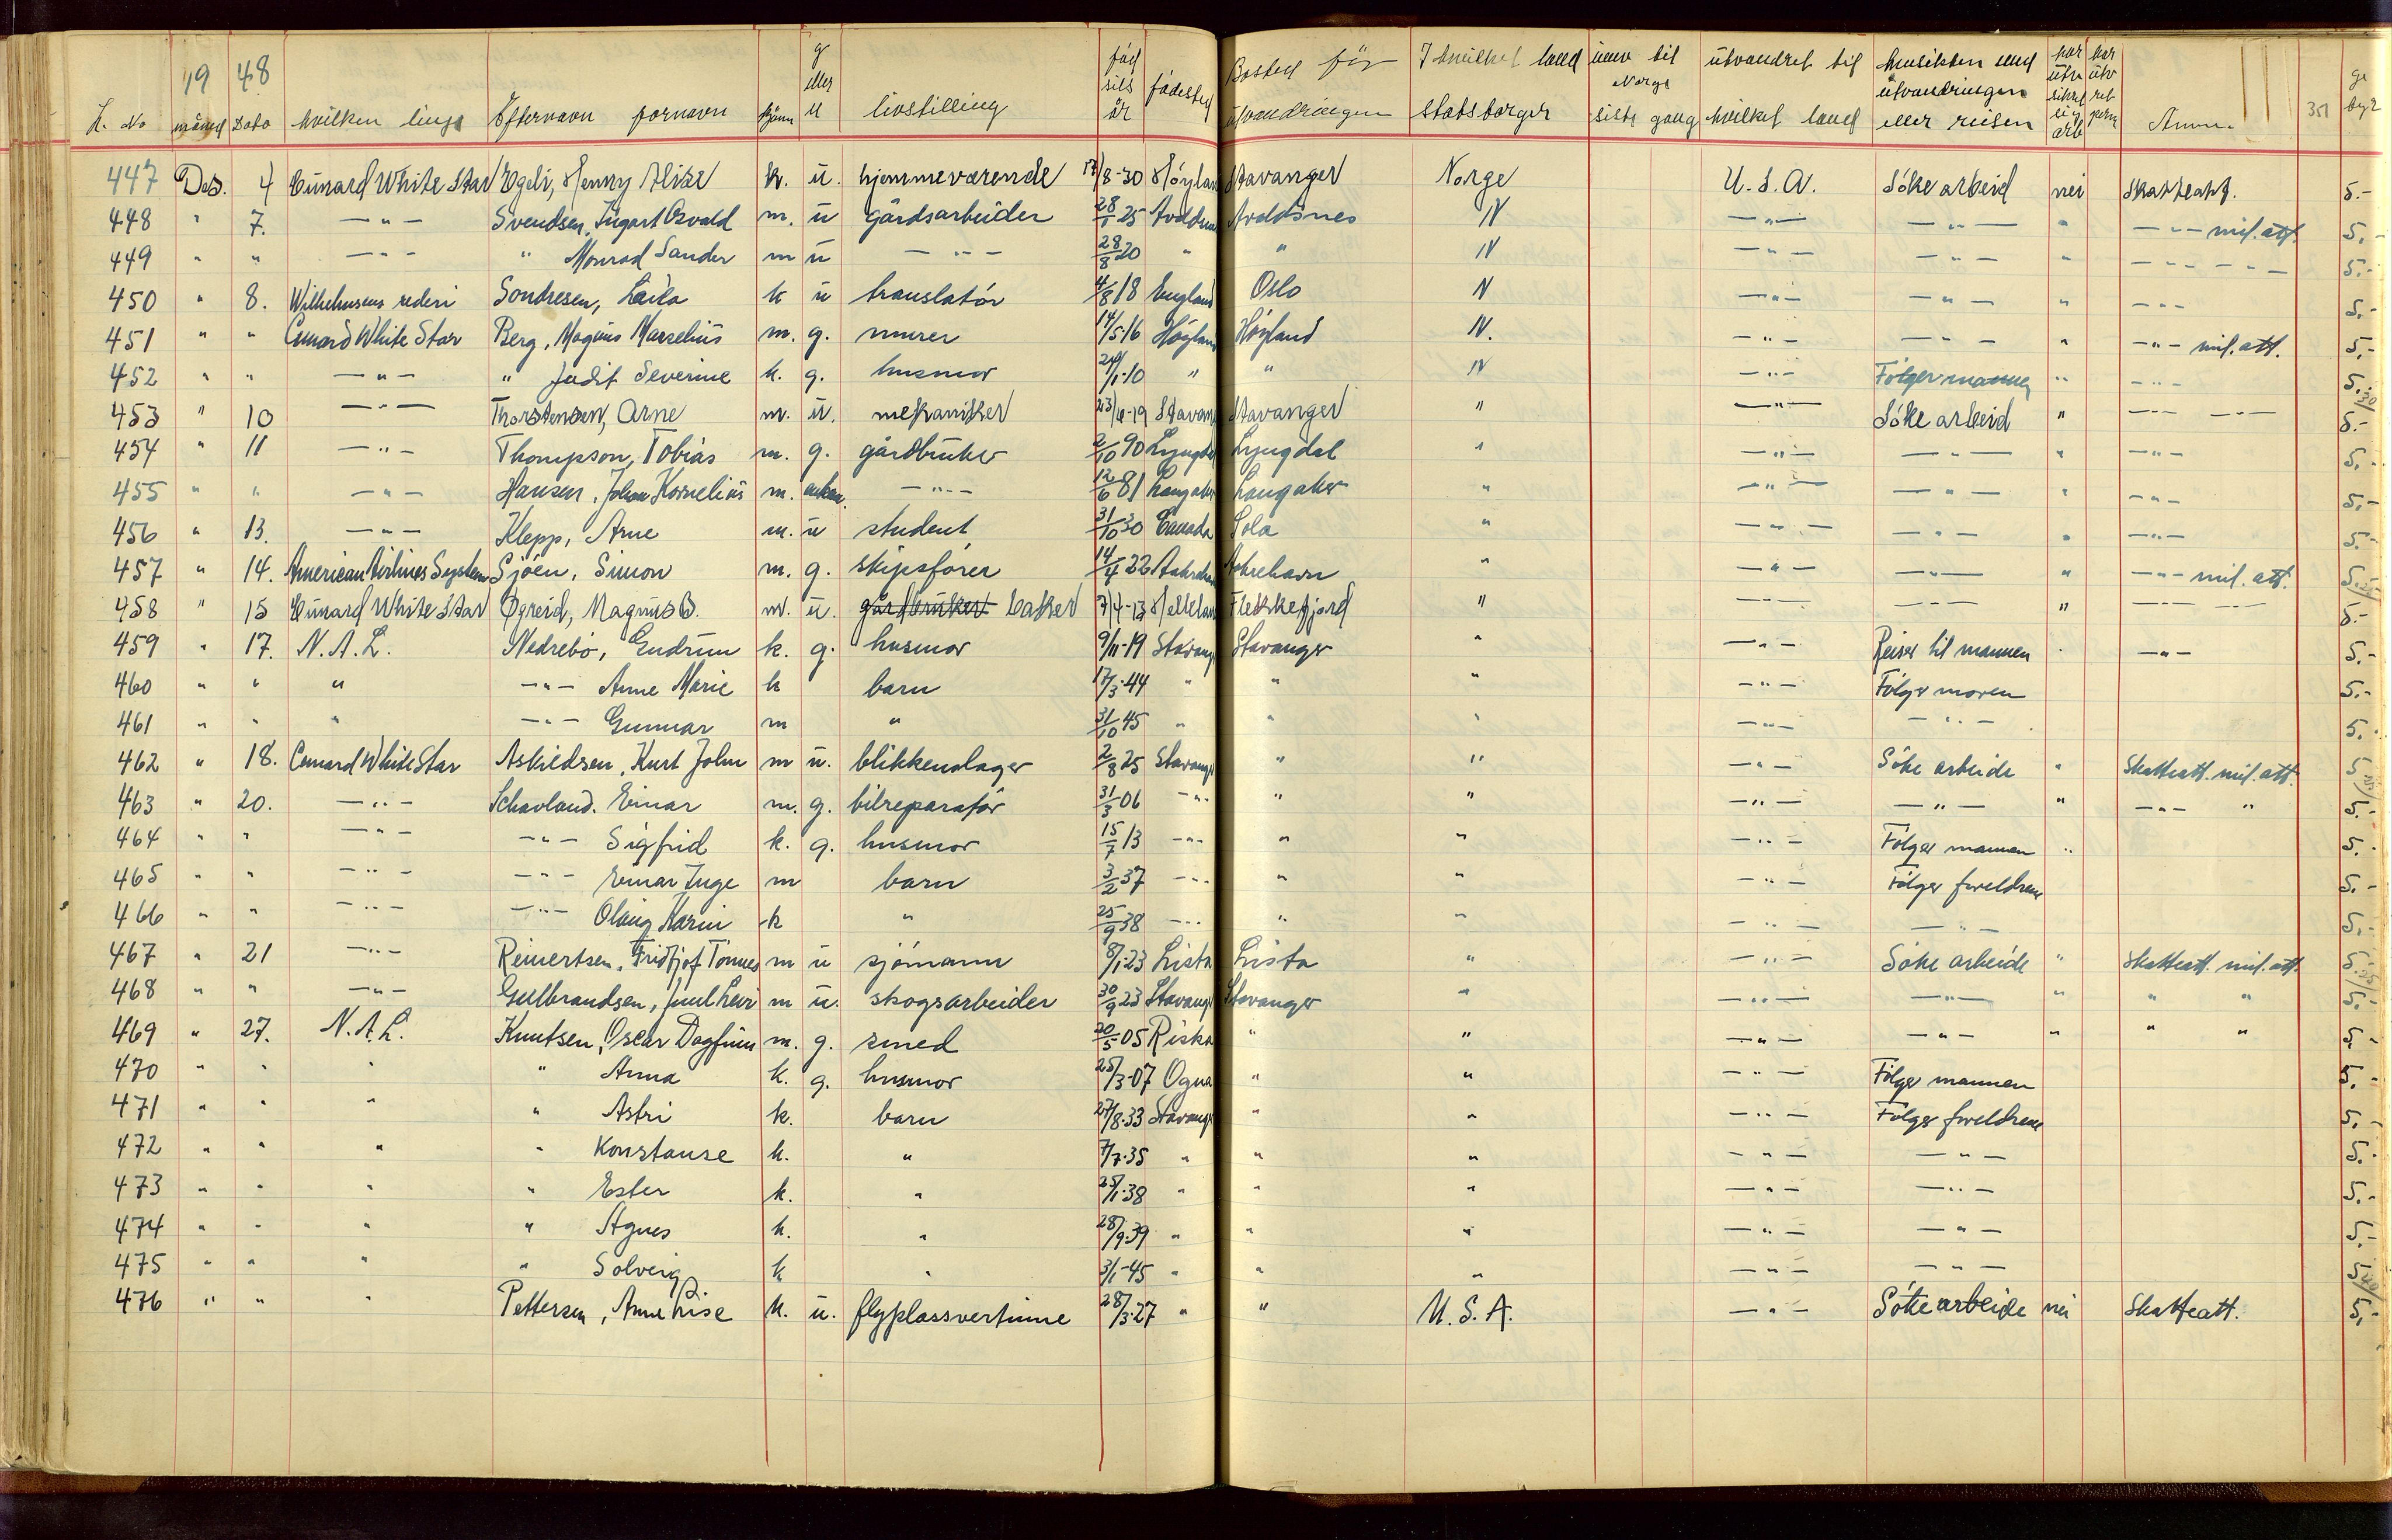 19 48
L. No måned Dato hvilken linje Eftersnavn fornavn kjønn g eller u livstilling fødselsår fødested Bosted før utvandringen I hvilket land statsborger innv til Norge siste gang utvandret til hvilket land hensikten med utvandringen eller reisen har utv sikret sig arb har utv ret perm Anm. 351 gebyr
447 Des. 4 Cunard White Star Egeli, Henny Alise k. u. hjemmeværende 17/8-30 Høyland Stavanger Norge U.S.A. Söke arbeid nei Skatteatt. 5.-
448 " 7. —"— Svendsen, Ingart Osvald m. u gårdsarbeider 28/1 25 Avaldsnes Avaldsnes N —"— —"— " —"— mil. att. 5.-
449 " " —"— " Monrad Sander m u —"— 28/8 20 " " N —"— —"— " —"— —"— 5.-
450 " 8. Wilhelmsens rederi Sondresen, Laila k u translatör 4/8 18 England Oslo N —"— —"— " —"— 5.-
451 " " Cunard White Star Berg, Magnus Marselius m. g. murer 14/5-16 Høyland Høyland N. —"— —"— " —"— mil. att. 5.-
452 " " —"— " Judit Severine k. g. husmor 24/1-10 " " N —"— Følger mannen " —"— 5.-
453 " 10 —"— Thorstensen, Arne m. u. mekaniker 23/6-19 Stavang Stavanger " —"— Söke arbeid " —"— —"— 5.-
454 " 11 —"— Thompson, Tobias m. g. gårdbruker 2/10 90 Lyngdal Lyngdal " —"— —"— " —"— 5.-
455 " " —"— Hansen, Johan Kornelius m. enkem. —"— 12/6 81 Langaker Langaker " —"— —"— " —"— 5.-
456 " 13. —"— Klepp, Arne m. u student 31/10 30 Canada Sola " —"— —"— " —"— 5.-
457 " 14. American Airlines System Sjöen, Simon m. g. skipsförer 14/4 22 Aakrehavn Aakrehavn " —"— —"— " —"— mil. att. 5.-
458 " 15 Cunard White Star Øgreid, Magnus B. m. u. gårdbruker baker 7/4-13 Helleland Flekkefjord " —"— —"— " —"— —"— 5.-
459 " 17. N.A.L. Nedrebö, Gudrun k. g. husmor 9/11-19 Stavang Stavanger " —"— Reiser til mannen " —"— 5.-
460 " " " —"— Anne Marie k barn 17/3-44 " " " —"— Følger moren 5.-
461 " " " —"— Gunnar m " 31/10 45 " " " —"— —"— 5.-
462 " 18. Cunard White Star Askildsen, Kurt John m u. blikkenslager 2/8 25 Stavang " " —"— Söke arbeide " Skatteatt. mil. att. 5.-
463 " 20. —"— Schavland. Einar m. g. bilreparatör 31/3 06 —"— " " —"— —"— " —"— " 5.-
464 " " —"— —"— Sigfrid k. g. husmor 15/7 13 —"— " " —"— Følger mannen " 5.-
465 " " —"— —"— Einar Inge m barn 3/2 37 —"— " " —"— Følger foreldrene 5.-
466 " " —"— —"— Olaug Karin k " 25/9 38 —"— " " —"— —"— 5.-
467 " 21 —"— Reinertsen, Fridtjof Tönnes m u sjömann 8/1-23 Lista Lista " —"— Söke arbeide " Skatteatt. mil. att. 5.-
468 " " —"— Gulbrandsen, Juul Levi m u. skogsarbeider 30/9 23 Stavang Stavanger " —"— —"— " " " 5.-
469 " 27. N.A.L. Knutsen, Oscar Dagfinn m. g. smed 20/5-05 Riska " " —"— —"— " " " 5.-
470 " " " " Anna k. g. husmor 25/3-07 Ogna " " —"— Følger mannen 5.-
471 " " " " Astri k. barn 27/8-33 Stavang " " —"— Følger foreldrene 5.-
472 " " " " Konstanse k. " 7/7-35 " " " —"— —"— 5.-
473 " " " " Ester k. " 25/1-38 " " " —"— —"— 5.-
474 " " " " Agnes k. " 28/9-39 " " " —"— —"— 5.-
475 " " " " Solveig k " 3/1-45 " " " —"— —"— 5.-
476 " " " Pettersen, Anne Lise k. u. flyplassvertinne 28/3-27 " " U.S.A. —"— Söke arbeide nei Skatteatt. 5.-